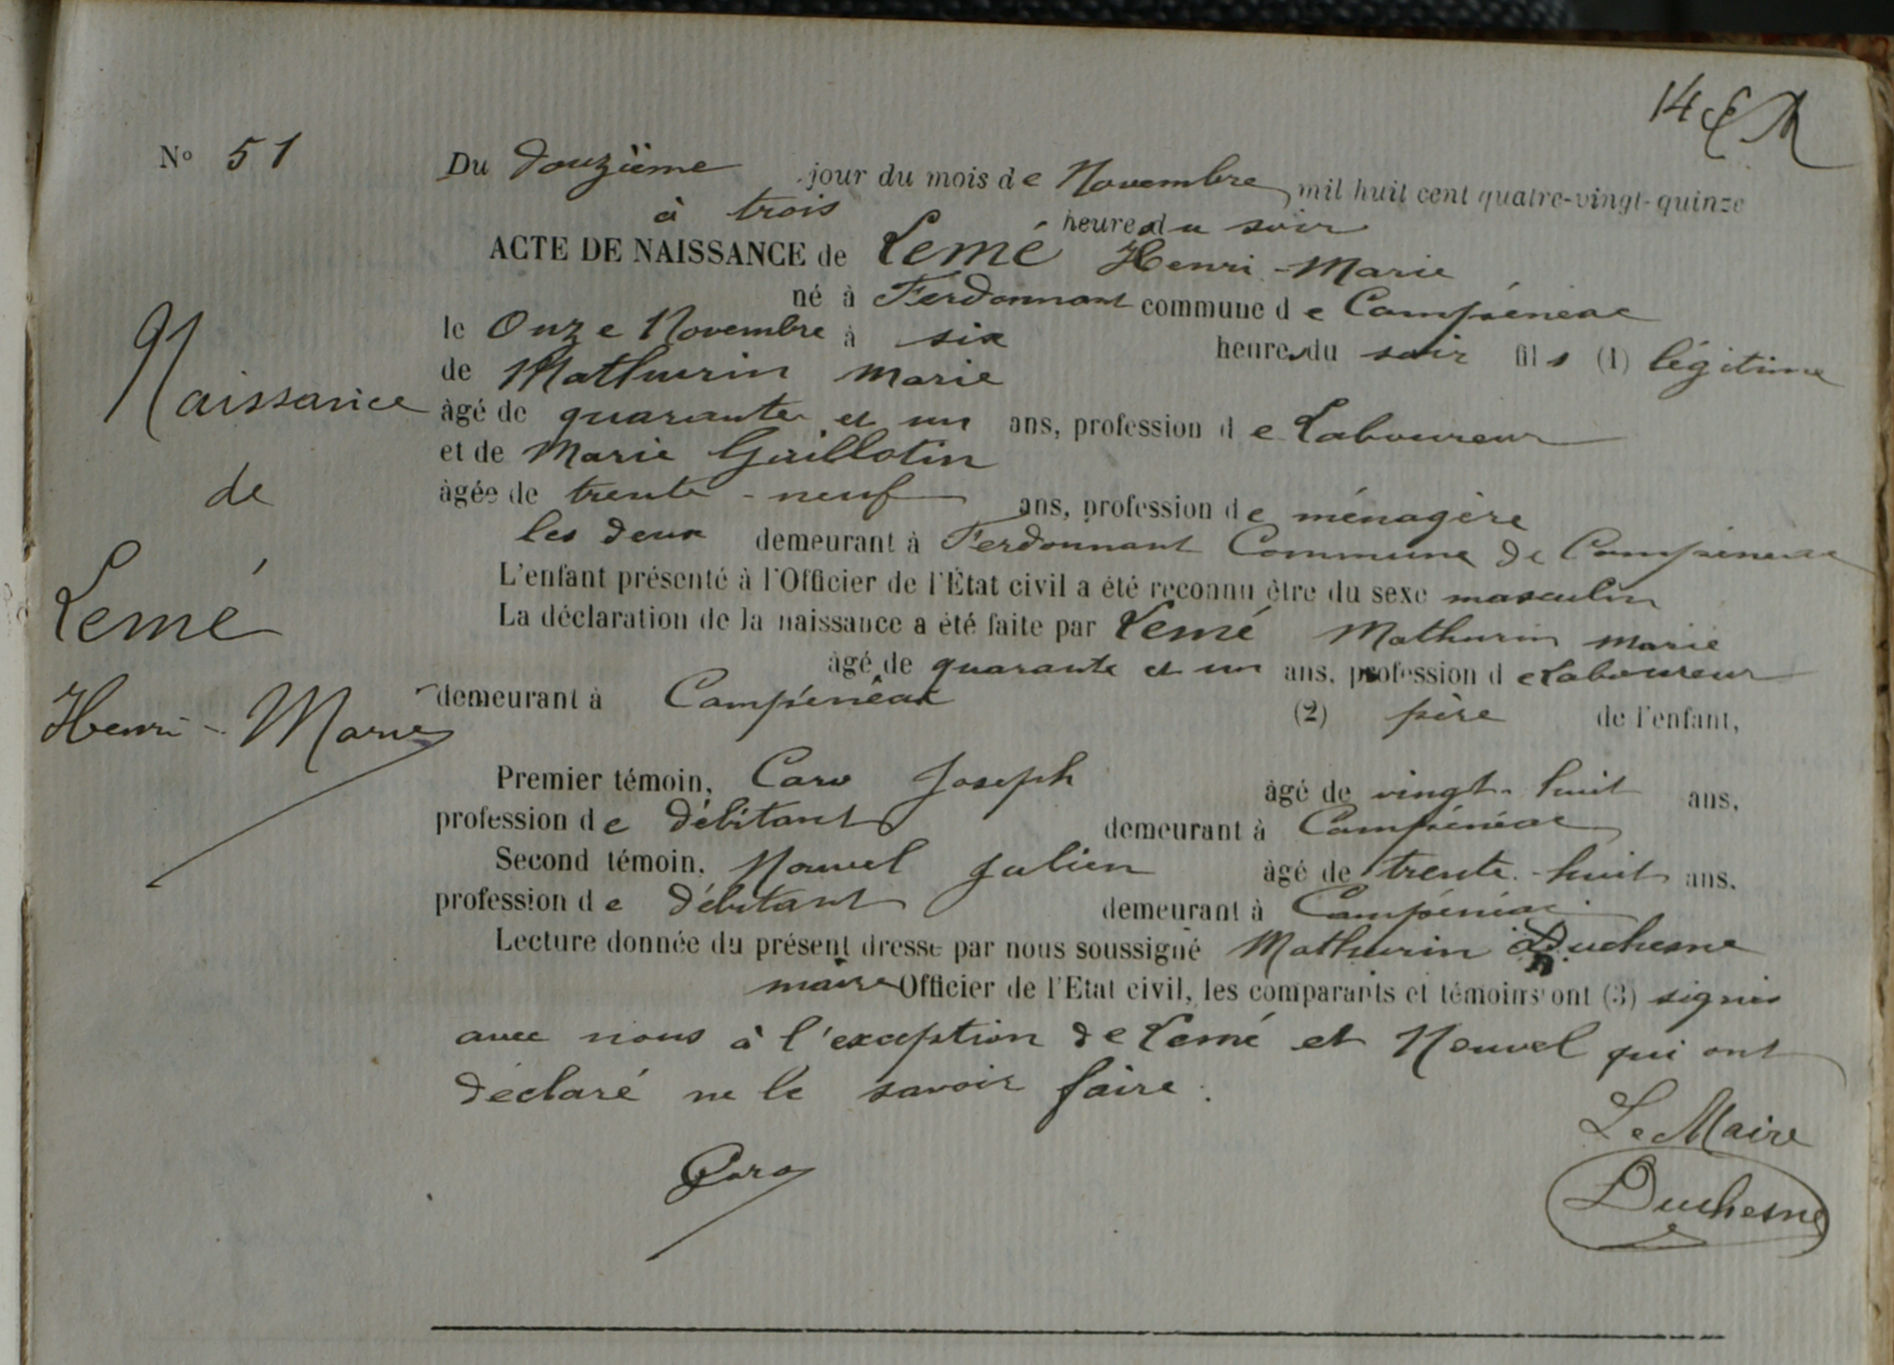 14
N° 51
Du douzième jour du mois de Novembre mil huit cent quatre-vingt-quinze
à trois heures du soir
ACTE DE NAISSANCE de Lemé Henri-Marie
né à Ferdonnant commune de Campénéac
le Onze Novembre à six heures du soir fils (1) légitime
de Mathurin Marie
âgé de quarante et un ans, profession de Laboureur
et de Marie Guillotin
âgée de trente-neuf ans, profession de ménagère
les deux demeurant à Ferdonnant Commune de Campénéac
L'enfant présenté à l'Officier de l'État civil a été reconnu être du sexe masculin
La déclaration de la naissance a été faite par Lemé Mathurin Marie
âgé de quarante et un ans, profession de Laboureur
demeurant à Campénéac (2) père de l'enfant,
Premier témoin, Caro Joseph âgé de vingt-huit ans,
profession de débitant demeurant à Campénéac
Second témoin, Nouvel Julien âgé de trente-huit ans.
profession de débitant demeurant à Campénéac
Lecture donnée du présent dressé par nous soussigné Mathurin Duchesne
maire Officier de l'Etat civil, les comparants et témoins ont (3) signés
avec nous à l'exception de Lemé et Nouvel qui ont
déclaré ne le savoir faire.
Le Maire
Caro
Duchesne
Naissance
de
Lemé
Henri-Marie